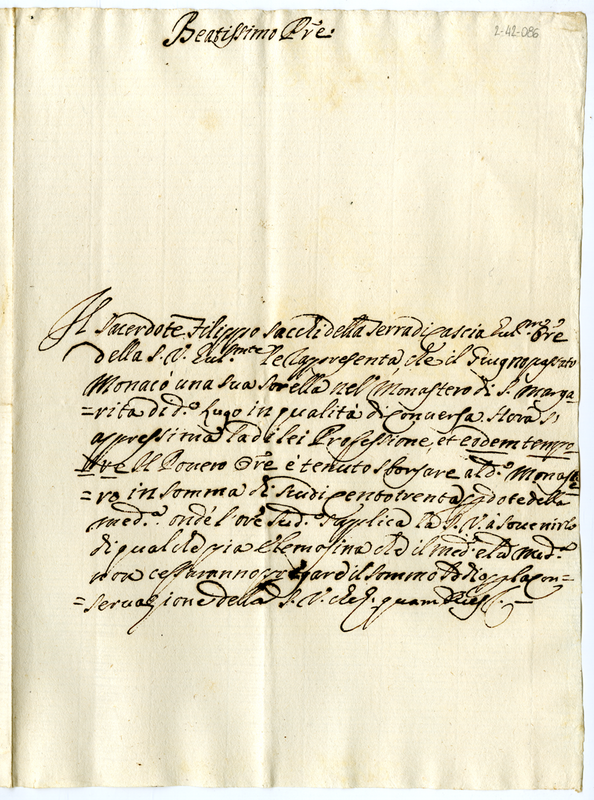 Beatissimo Pr̃e:
2-42-086
Il Sacerdote Filippo Saccoli della Terra di Um.mo Ore
della S. V. Um.mte le rappresenta, che il Giugno passato
Monacò una sua Sorella nel Monastero di S. Marga
=rita di d.o luogo in qualità di Conversa. Hora si
appressima la di lei Professione, et eodem tempo
=re Il Povero Ore è tenuto sborsare al d.o Monaste
=ro in somma di Scudi Cento trenta p dote della
med.a, onde l'Ore sud.o supplica la S. V. à sovenirlo
di qualche pia Elemosina che il med.o e la med.a
non cesseranno pregare il sommo Dio p la con=
=servazione della S. V. che. quam Deus.